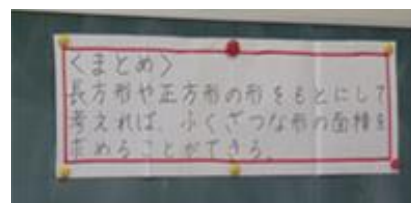 <まとめ>
長方形や正方形の形をもとにして
考えれば、ふくざつな形の面積を
求めることができる。